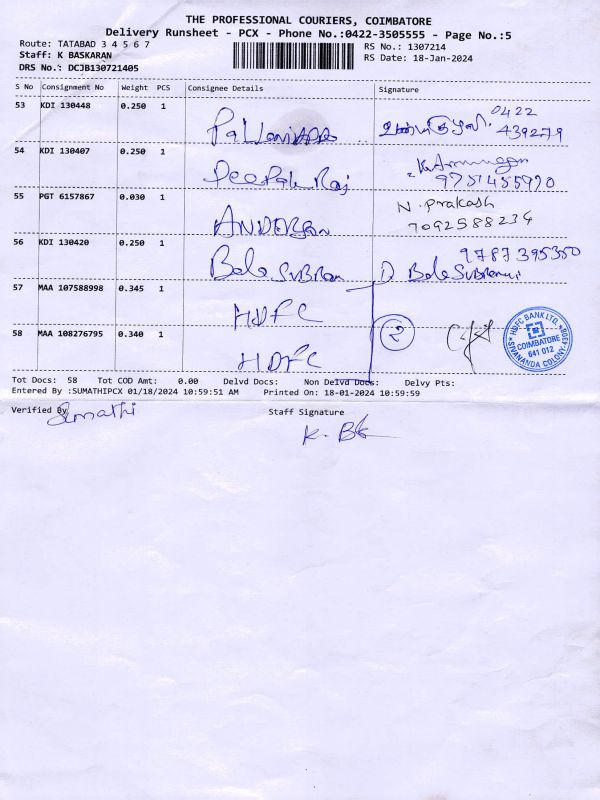 THE PROFESSIONAL COURIERS, COIMBATORE
Delivery Runsheet - PCX - Phone No.:0422-3505555 - Page No.:5
Route: TATABAD 3 4 5 6 7
RS No.: 1307214
Staff: K BASKARAN
RS Date: 18-Jan-2024
DRS No.: DCJB130721405
S No Consignment No Weight PCS Consignee Details Signature
53 KDI 130448 0.250 1 0422
439279
54 KDI 130407 0.250 1 Deepak Raj K. Arumugam
9751455990
55 PGT 6157867 0.030 1 N. prakash
7092588234
56 KDI 130420 0.250 1 Bala Subram 9787395350
D Bala Subramani
57 MAA 107588998 0.345 1 HDFC
2
58 MAA 108276795 0.340 1 HDFC
HDFC BANK LTD.
COIMBATORE
641 012
SIVANANDA COLONY
Tot Docs: 58 Tot COD Amt: 0.00 Delvd Docs: Non Delvd Docs: Delvy Pts:
Entered By :SUMATHIPCX 01/18/2024 10:59:51 AM Printed On: 18-01-2024 10:59:59
Verified By Sumathi
Staff Signature
K. Bk